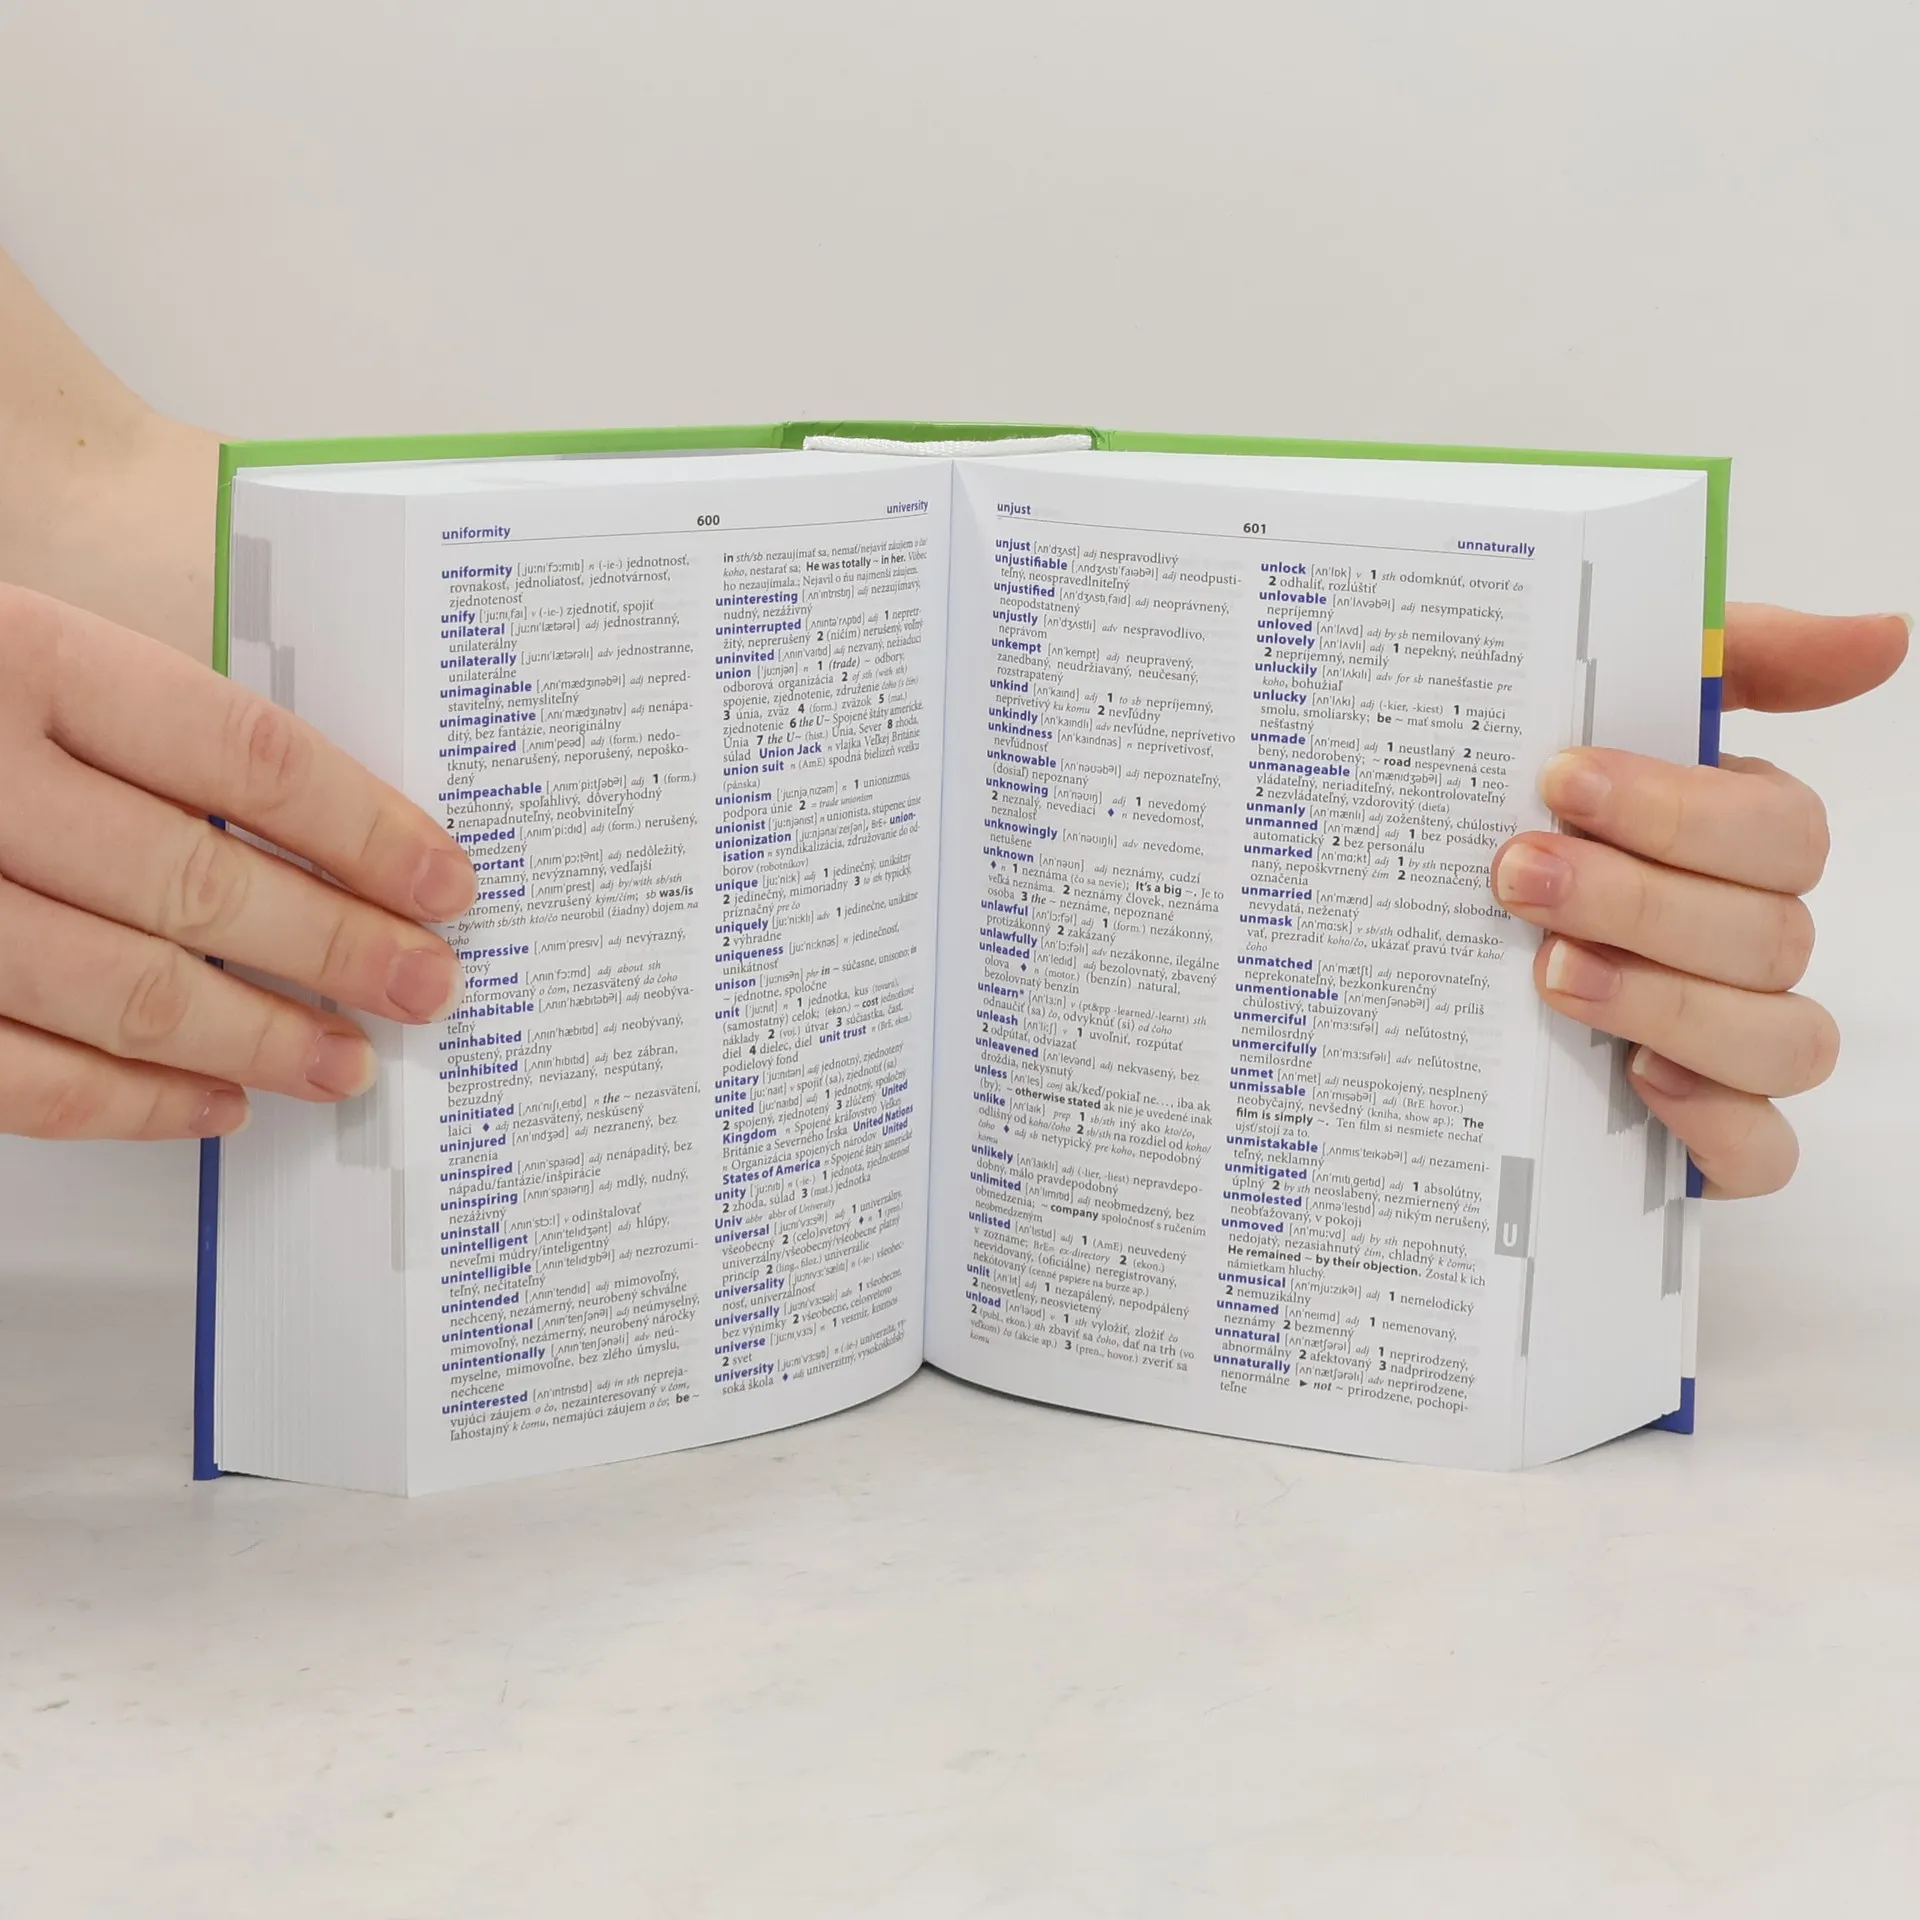 uniformity 600 university
uniformity [ˌjuːnɪˈfɔːmɪtɪ] n (-ie-) jednotnosť,
rovnakosť, jednoliatosť, jednotvárnosť,
zjednotenosť
unify [ˈjuːnɪˌfaɪ] v (-ie-) zjednotiť, spojiť
unilateral [ˌjuːnɪˈlætərəl] adj jednostranný,
unilaterálny
unilaterally [ˌjuːnɪˈlætərəlɪ] adv jednostranne,
unilaterálne
unimaginable [ˌʌnɪˈmædʒɪnəbəl] adj nepred-
staviteľný, nemysliteľný
unimaginative [ˌʌnɪˈmædʒɪnətɪv] adj nenápa-
ditý, bez fantázie, neoriginálny
unimpaired [ˌʌnɪmˈpeəd] adj (form.) nedo-
tknutý, nenarušený, neporušený, nepoško-
dený
unimpeachable [ˌʌnɪmˈpiːtʃəbəl] adj 1 (form.)
bezúhonný, spoľahlivý, dôveryhodný
2 nenapadnuteľný, neobviniteľný
impeded [ˌʌnɪmˈpiːdɪd] adj (form.) nerušený,
obmedzený
portant [ˌʌnɪmˈpɔːtənt] adj nedôležitý,
znamný, nevýznamný, vedľajší
pressed [ˌʌnɪmˈprest] adj by/with sb/sth
hromený, nevzrušený kým/čím; sb was/is
~ by/with sb/sth kto/čo neurobil (žiadny) dojem na
koho
impressive [ˌʌnɪmˈpresɪv] adj nevýrazný,
tový
formed [ˌʌnɪnˈfɔːmd] adj about sth
informovaný o čom, nezasvätený do čoho
inhabitable [ˌʌnɪnˈhæbɪtəbəl] adj neobýva-
teľný
uninhabited [ˌʌnɪnˈhæbɪtɪd] adj neobývaný,
opustený, prázdny
uninhibited [ˌʌnɪnˈhɪbɪtɪd] adj bez zábran,
bezprostredný, neviazaný, nespútaný,
bezuzdný
uninitiated [ˌʌnɪˈnɪʃɪˌeɪtɪd] n the ~ nezasvätení,
laici ♦ adj nezasvätený, neskúsený
uninjured [ʌnˈɪndʒəd] adj nezranený, bez
zranenia
uninspired [ˌʌnɪnˈspaɪəd] adj nenápaditý, bez
nápadu/fantázie/inšpirácie
uninspiring [ˌʌnɪnˈspaɪərɪŋ] adj mdlý, nudný,
nezáživný
uninstall [ˌʌnɪnˈstɔːl] v odinštalovať
unintelligent [ˌʌnɪnˈtelɪdʒənt] adj hlúpy,
neveľmi múdry/inteligentný
unintelligible [ˌʌnɪnˈtelɪdʒɪbəl] adj nezrozumi-
teľný, nečitateľný
unintended [ˌʌnɪnˈtendɪd] adj mimovoľný,
nechcený, nezámerný, neurobený schválne
unintentional [ˌʌnɪnˈtenʃənəl] adj neúmyselný,
mimovoľný, nezámerný, neurobený náročky
unintentionally [ˌʌnɪnˈtenʃənəlɪ] adv neú-
myselne, mimovoľne, bez zlého úmyslu,
nechcene
uninterested [ʌnˈɪntrɪstɪd] adj in sth nepreja-
vujúci záujem o čo, nezainteresovaný v čom,
ľahostajný k čomu, nemajúci záujem o čo; be ~
in sth/sb nezaujímať sa, nemať/nejaviť záujem o čo/
koho, nestarať sa; He was totally ~ in her. Vôbec
ho nezaujímala.; Nejavil o ňu najmenší záujem.
uninteresting [ʌnˈɪntrɪstɪŋ] adj nezaujímavý,
nudný, nezáživný
uninterrupted [ˌʌnɪntəˈrʌptɪd] adj 1 nepretr-
žitý, neprerušený 2 (ničím) nerušený, voľný
uninvited [ˌʌnɪnˈvaɪtɪd] adj nezvaný, nežiaduci
union [ˈjuːnjən] n 1 (trade) ~ odbory,
odborová organizácia 2 of sth (with sth)
spojenie, zjednotenie, združenie čoho (s čím)
3 únia, zväz 4 (form.) zväzok 5 (mat.)
zjednotenie 6 the U~ Spojené štáty americké,
Únia 7 the U~ (hist.) Únia, Sever 8 zhoda,
súlad Union Jack n vlajka Veľkej Británie
union suit n (AmE) spodná bielizeň vcelku
(pánska)
unionism [ˈjuːnjəˌnɪzəm] n 1 unionizmus,
podpora únie 2 = trade unionism
unionist [ˈjuːnjənɪst] n unionista, stúpenec únie
unionization [ˌjuːnjənaɪˈzeɪʃən], BrE+ union-
isation n syndikalizácia, združovanie do od-
borov (robotníkov)
unique [juːˈniːk] adj 1 jedinečný, unikátny
2 jedinečný, mimoriadny 3 to sth typický,
príznačný pre čo
uniquely [juːˈniːklɪ] adv 1 jedinečne, unikátne
2 výhradne
uniqueness [juːˈniːknəs] n jedinečnosť,
unikátnosť
unison [ˈjuːnɪsən] phr in ~ súčasne, unisono; in
~ jednotne, spoločne
unit [ˈjuːnɪt] n 1 jednotka, kus (tovaru),
(samostatný) celok; (ekon.) ~ cost jednotkové
náklady 2 (voj.) útvar 3 súčiastka, časť,
diel 4 dielec, diel unit trust n (BrE, ekon.)
podielový fond
unitary [ˈjuːnɪtərɪ] adj jednotný, zjednotený
unite [juːˈnaɪt] v spojiť (sa), zjednotiť (sa)
united [juːˈnaɪtɪd] adj 1 jednotný, spoločný
2 spojený, zjednotený 3 zlúčený United
Kingdom n Spojené kráľovstvo Veľkej
Británie a Severného Írska United Nations
n Organizácia spojených národov United
States of America n Spojené štáty americké
unity [ˈjuːnɪtɪ] n (-ie-) 1 jednota, zjednotenosť
2 zhoda, súlad 3 (mat.) jednotka
Univ abbr abbr of University
universal [ˌjuːnɪˈvɜːsəl] adj 1 univerzálny,
všeobecný 2 (celo)svetový ♦ n 1 (pren.)
univerzálny/všeobecný/všeobecne platný
princíp 2 (ling., filoz.) univerzálie
universality [ˌjuːnɪvɜːˈsælɪtɪ] n (-ie-) všeobec-
nosť, univerzálnosť
universally [ˌjuːnɪˈvɜːsəlɪ] adv 1 všeobecne,
bez výnimky 2 všeobecne, celosvetovo
universe [ˈjuːnɪˌvɜːs] n 1 vesmír, kozmos
2 svet
university [ˌjuːnɪˈvɜːsɪtɪ] n (-ie-) univerzita, vy-
soká škola ♦ adj univerzitný, vysokoškolský
unjust 601 unnaturally
unjust [ʌnˈdʒʌst] adj nespravodlivý
unjustifiable [ʌnˌdʒʌstɪˈfaɪəbəl] adj neodpusti-
teľný, neospravedlniteľný
unjustified [ʌnˈdʒʌstɪˌfaɪd] adj neoprávnený,
neopodstatnený
unjustly [ʌnˈdʒʌstlɪ] adv nespravodlivo,
neprávom
unkempt [ʌnˈkempt] adj neupravený,
zanedbaný, neudržiavaný, neučesaný,
rozstrapatený
unkind [ʌnˈkaɪnd] adj 1 to sb nepríjemný,
neprívetivý ku komu 2 nevľúdny
unkindly [ʌnˈkaɪndlɪ] adv nevľúdne, neprívetivo
unkindness [ʌnˈkaɪndnəs] n neprívetivosť,
nevľúdnosť
unknowable [ʌnˈnəʊəbəl] adj nepoznateľný,
(dosiaľ) nepoznaný
unknowing [ʌnˈnəʊɪŋ] adj 1 nevedomý
2 neznalý, nevediaci ♦ n nevedomosť,
neznalosť
unknowingly [ʌnˈnəʊɪŋlɪ] adv nevedome,
netušene
unknown [ʌnˈnəʊn] adj neznámy, cudzí
♦ n 1 neznáma (čo sa nevie); It's a big ~. Je to
veľká neznáma. 2 neznámy človek, neznáma
osoba 3 the ~ neznáme, nepoznané
unlawful [ʌnˈlɔːfəl] adj 1 (form.) nezákonný,
protizákonný 2 zakázaný
unlawfully [ʌnˈlɔːfəlɪ] adv nezákonne, ilegálne
unleaded [ʌnˈledɪd] adj bezolovnatý, zbavený
olova ♦ n (motor.) (benzín) natural,
bezolovnatý benzín
unlearn* [ʌnˈlɜːn] v (pt&pp -learned/-learnt) sth
odnaučiť (sa) čo, odvyknúť (si) od čoho
unleash [ʌnˈliːʃ] v 1 uvoľniť, rozpútať
2 odpútať, odviazať
unleavened [ʌnˈlevənd] adj nekvasený, bez
droždia, nekysnutý
unless [ʌnˈles] conj ak/keď/pokiaľ ne…, iba ak
(by); ~ otherwise stated ak nie je uvedené inak
unlike [ʌnˈlaɪk] prep 1 sb/sth iný ako kto/čo,
odlišný od koho/čoho 2 sb/sth na rozdiel od koho/
čoho ♦ adj sb netypický pre koho, nepodobný
komu
unlikely [ʌnˈlaɪklɪ] adj (-lier, -liest) nepravdepo-
dobný, málo pravdepodobný
unlimited [ʌnˈlɪmɪtɪd] adj neobmedzený, bez
obmedzenia; ~ company spoločnosť s ručením
neobmedzeným
unlisted [ʌnˈlɪstɪd] adj 1 (AmE) neuvedený
v zozname; BrE= ex-directory 2 (ekon.)
neevidovaný, (oficiálne) neregistrovaný,
nekótovaný (cenné papiere na burze ap.)
unlit [ʌnˈlɪt] adj 1 nezapálený, nepodpálený
2 neosvetlený, neosvietený
unload [ʌnˈləʊd] v 1 sth vyložiť, zložiť čo
2 (publ., ekon.) sth zbaviť sa čoho, dať na trh (vo
veľkom) čo (akcie ap.) 3 (pren., hovor.) zveriť sa
komu
unlock [ʌnˈlɒk] v 1 sth odomknúť, otvoriť čo
2 odhaliť, rozlúštiť
unlovable [ʌnˈlʌvəbəl] adj nesympatický,
nepríjemný
unloved [ʌnˈlʌvd] adj by sb nemilovaný kým
unlovely [ʌnˈlʌvlɪ] adj 1 nepekný, neúhľadný
2 nepríjemný, nemilý
unluckily [ʌnˈlʌkɪlɪ] adv for sb nanešťastie pre
koho, bohužiaľ
unlucky [ʌnˈlʌkɪ] adj (-kier, -kiest) 1 majúci
smolu, smoliarsky; be ~ mať smolu 2 čierny,
nešťastný
unmade [ʌnˈmeɪd] adj 1 neustlaný 2 neuro-
bený, nedorobený; ~ road nespevnená cesta
unmanageable [ʌnˈmænɪdʒəbəl] adj 1 neo-
vládateľný, neriaditeľný, nekontrolovateľný
2 nezvládateľný, vzdorovitý (dieťa)
unmanly [ʌnˈmænlɪ] adj zoženštený, chúlostivý
unmanned [ʌnˈmænd] adj 1 bez posádky,
automatický 2 bez personálu
unmarked [ʌnˈmɑːkt] adj 1 by sth nepozna-
naný, nepoškvrnený čím 2 neoznačený, b
označenia
unmarried [ʌnˈmærɪd] adj slobodný, slobodná,
nevydatá, neženatý
unmask [ʌnˈmɑːsk] v sb/sth odhaliť, demasko-
vať, prezradiť koho/čo, ukázať pravú tvár koho/
čoho
unmatched [ʌnˈmætʃt] adj neporovnateľný,
neprekonateľný, bezkonkurenčný
unmentionable [ʌnˈmenʃənəbəl] adj príliš
chúlostivý, tabuizovaný
unmerciful [ʌnˈmɜːsɪfəl] adj neľútostný,
nemilosrdný
unmercifully [ʌnˈmɜːsɪfəlɪ] adv neľútostne,
nemilosrdne
unmet [ʌnˈmet] adj neuspokojený, nesplnený
unmissable [ʌnˈmɪsəbəl] adj (BrE hovor.)
neobyčajný, nevšedný (kniha, show ap.); The
film is simply ~. Ten film si nesmiete nechať
ujsť/stojí za to.
unmistakable [ˌʌnmɪsˈteɪkəbəl] adj nezameni-
teľný, neklamný
unmitigated [ʌnˈmɪtɪˌgeɪtɪd] adj 1 absolútny,
úplný 2 by sth neoslabený, nezmiernený čím
unmolested [ˌʌnməˈlestɪd] adj nikým nerušený,
neobťažovaný, v pokoji
unmoved [ʌnˈmuːvd] adj by sth nepohnutý,
nedojatý, nezasiahnutý čím, chladný k čomu;
He remained ~ by their objection. Zostal k ich
námietkam hluchý.
unmusical [ʌnˈmjuːzɪkəl] adj 1 nemelodický
2 nemuzikálny
unnamed [ʌnˈneɪmd] adj 1 nemenovaný,
neznámy 2 bezmenný
unnatural [ʌnˈnætʃərəl] adj 1 neprirodzený,
abnormálny 2 afektovaný 3 nadprirodzený
unnaturally [ʌnˈnætʃərəlɪ] adv neprirodzene,
nenormálne ► not ~ prirodzene, pochopi-
teľne
U